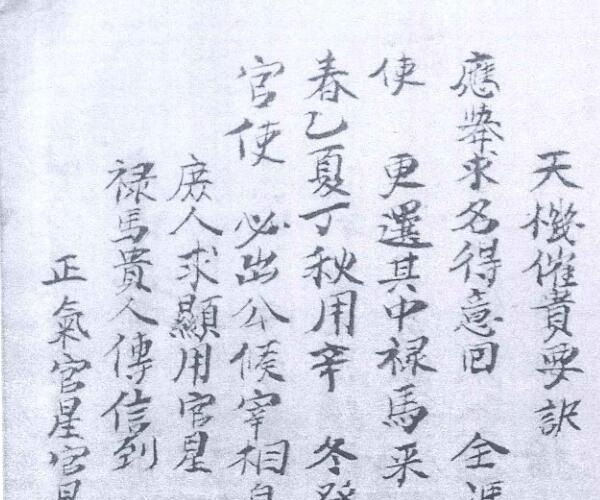 天機催貴要訣
應舉求名得意回 全
使 更選其中禄馬来
春乙夏丁秋用辛 冬
官使 必出公候宰相
庶人求顯用官星
禄馬貴人傳信到
正氣官星官